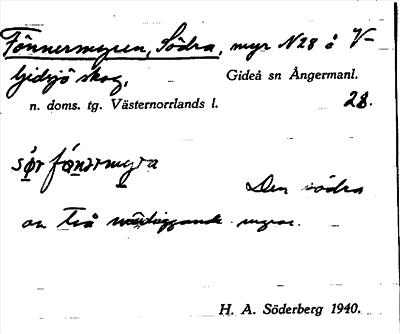 Fönnermyren, Södra, myr N28 å V-
Gidsjö skog, Gideå sn Ångermanl.
n. doms. tg. Västernorrlands l. 28.
Den södra
av två myrar.
H. A. Söderberg 1940.